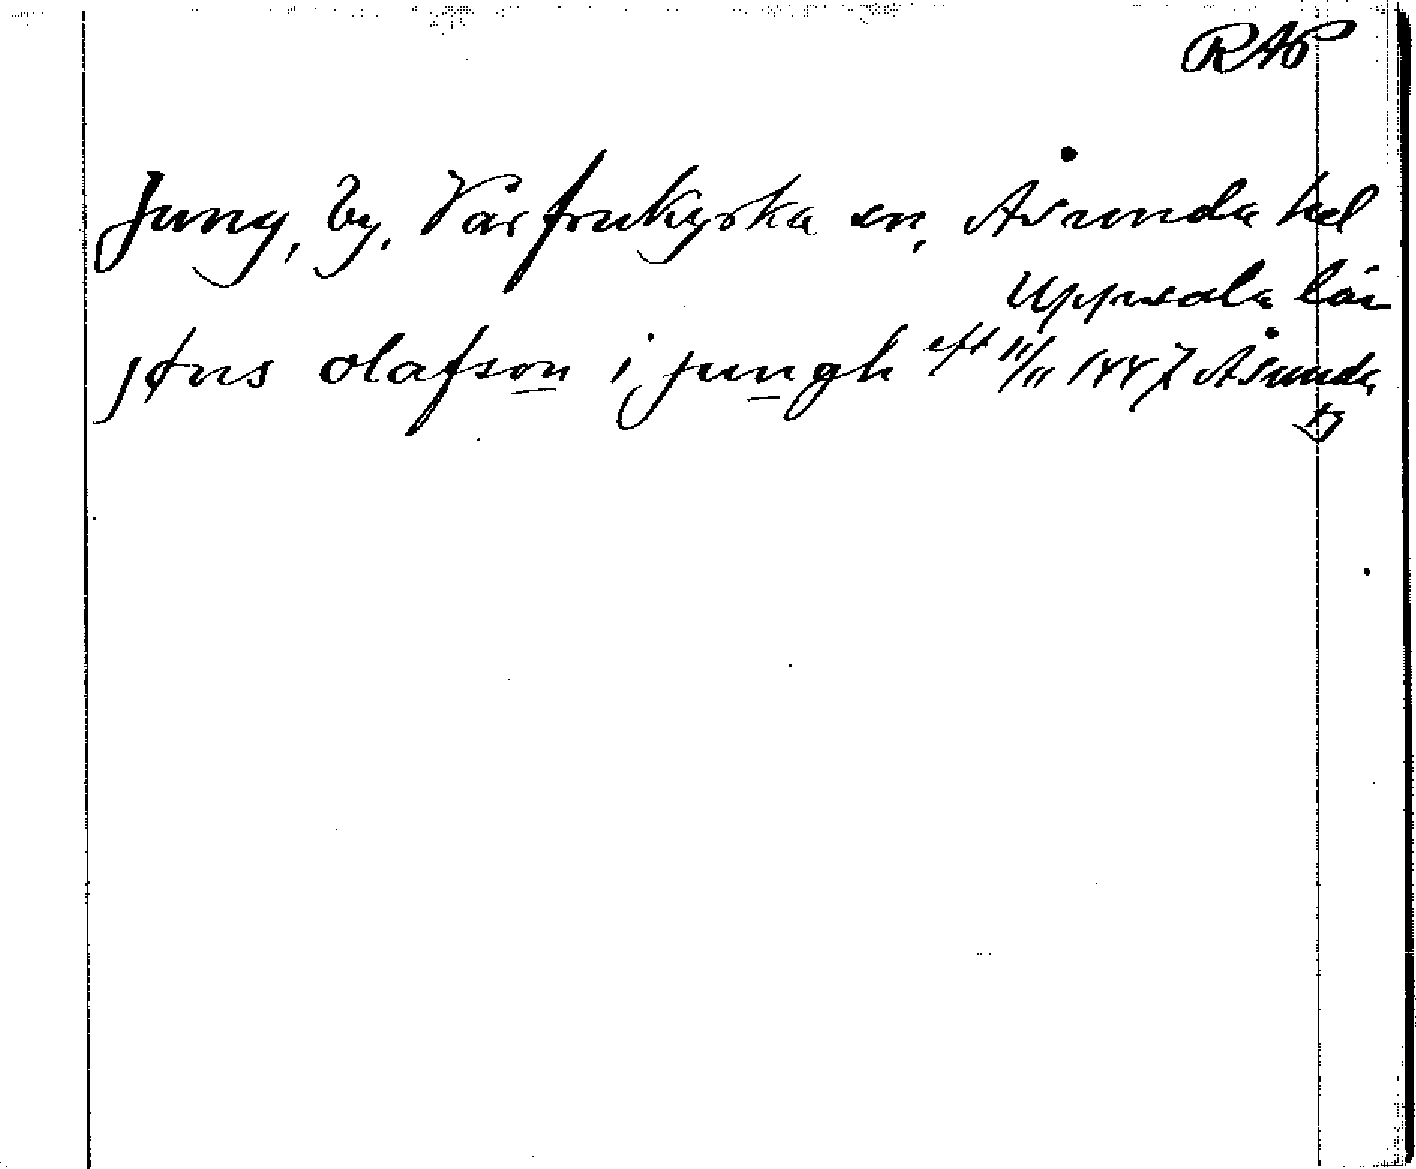 RAP
Jung, by, Vårfrukyrka sn, Åsunda hd
Uppsala län
jøns olafson i jungh eft 11/11 1447 Åsunda